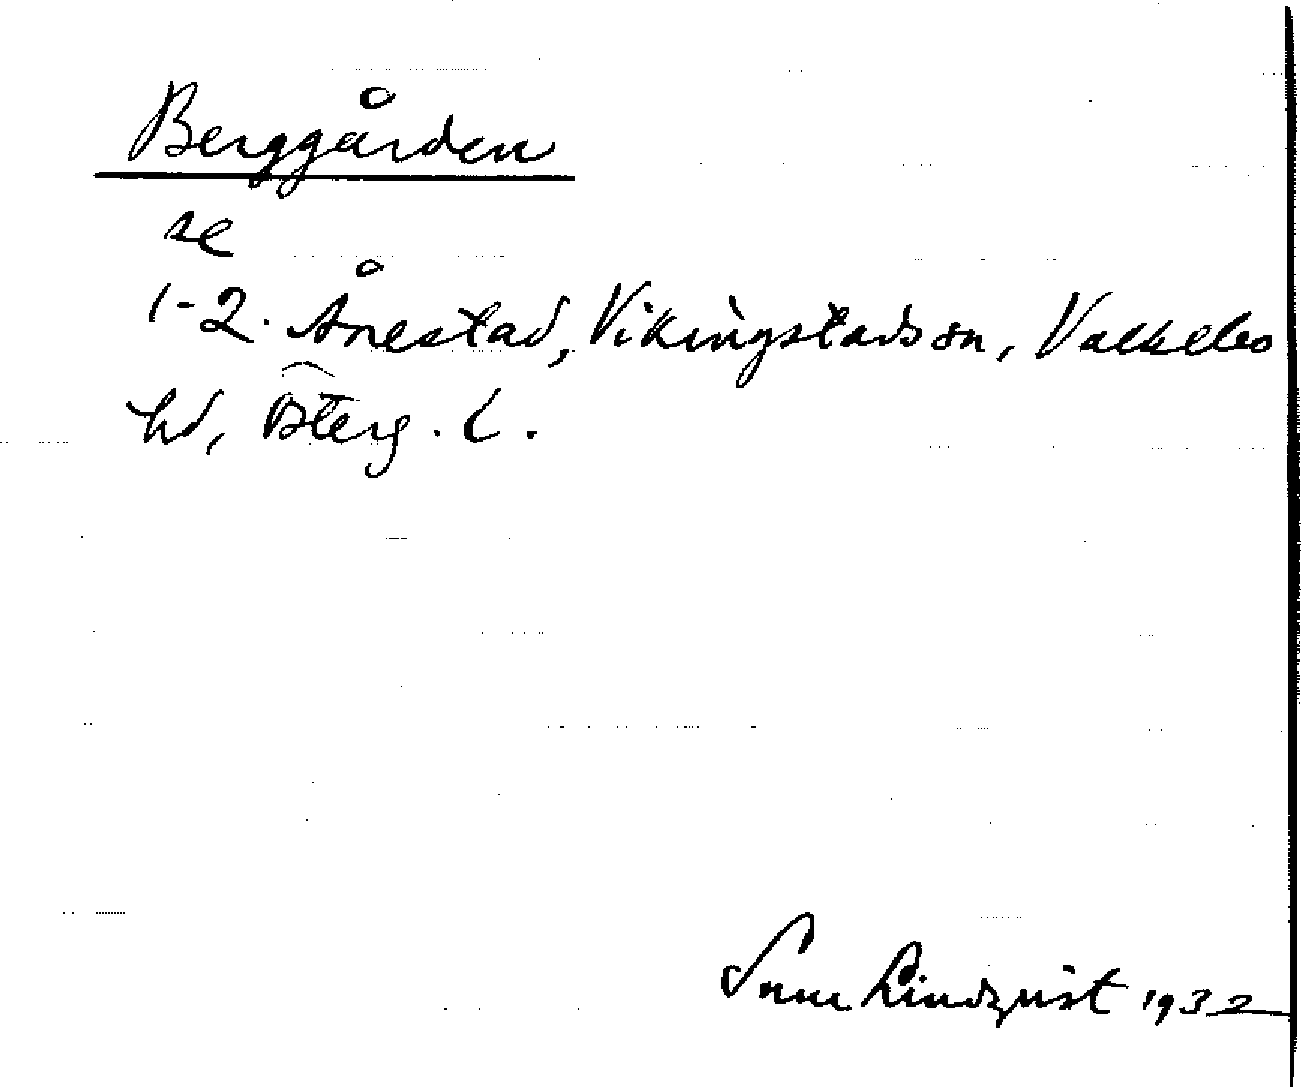 Berggården
se
1-2. Ånestad, Vikingstads sn, Valkebo
hd, Österg. L.
Sune Lindqvist 1932